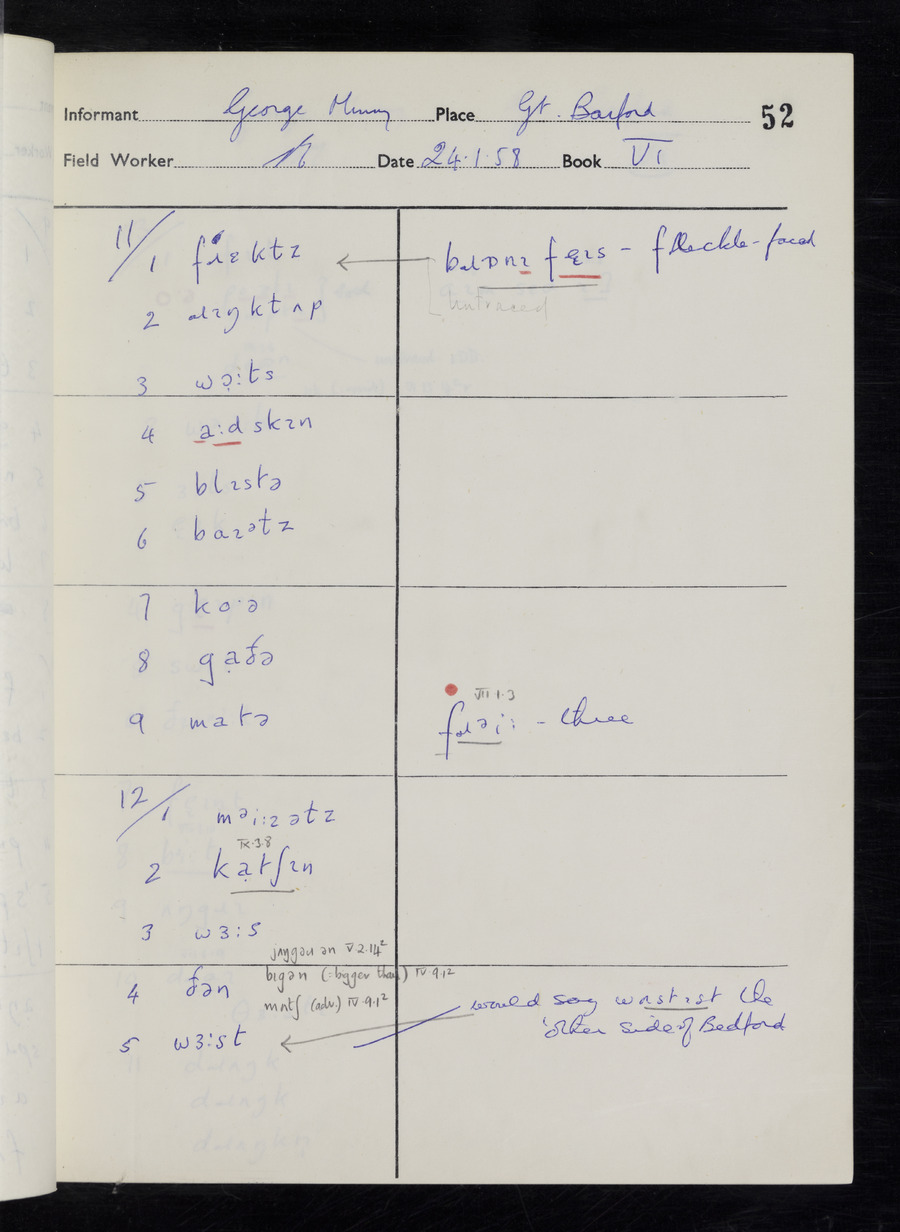 Informant George Place Gt. Barford 52
Field Worker Date 24.1.58 Book VI
11/1 fɹɛktz
bɹɒnɪ fɛɪs - fleckle-faced
untraced
2 ɹɪŋktʌp
3 wə̣:ts
4 a:dskɪn
5 blɪstə
6 baɪᵊtz
7 ko·ə
8 gạðə
9 matə
VII.1.3
fɹəi: - three
12/1 mᵊi:ɪətz
IX.3.8
2 kạtʃɪn
3 wɜ:s
jʌŋgəɹ ən V.2.14²
bɪgən (=bigger than) IV.9.1²
mʌtʃ (adv.) IV.9.1²
4 ðən
would say wʌstɪst the
other side of Bedford
5 wɜ:st